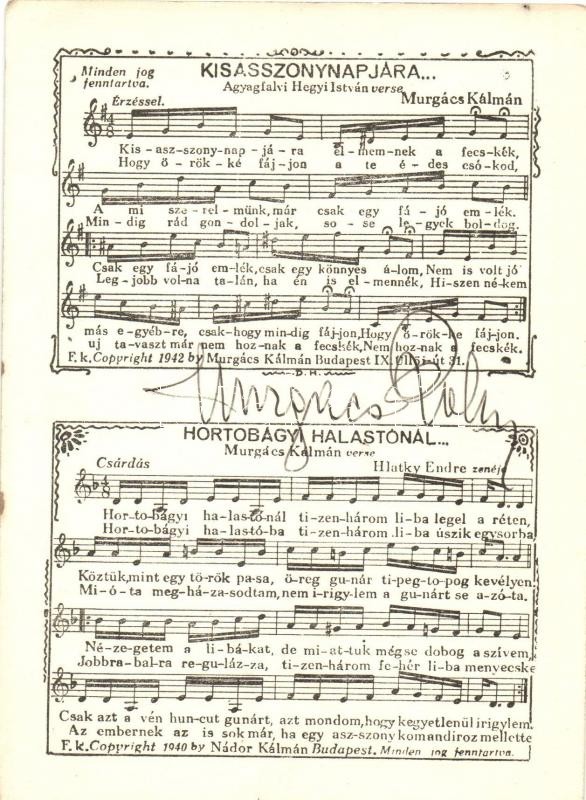 Minden jog
fenntartva.
KISASSZONYNAPJÁRA...
Agyagfalvi Hegyi István verse
Murgács Kálmán
Érzéssel.
Kis-asz-szony-nap-já-ra el-mem-nek a fecs-kék,
Hogy ö-rök-ké fáj-jon a te é-des csó-kod,
A mi sze-rel-münk, már csak egy fá-jó em-lék.
Min-dig rád gon-dol-jak, so-se le-gyek bol-dog.
Csak egy fá-jó em-lék, csak egy könnyes á-lom, Nem is volt jó
Leg-jobb vol-na ta-lán, ha én is el-mennék, Hi-szen né-kem
más e-gyéb-re, csak-hogy min-dig fáj-jon, Hogy ö-rök-ke fáj-jon.
uj ta-vaszt már nem hoz-nak a fecskék, Nem hoz-nak a fecskék.
F. k. Copyright 1942 by Murgács Kálmán Budapest IX. Üllői-út 31.
D. H.
Murgács Kálmán
HORTOBÁGYI HALASTÓNÁL...
Murgács Kálmán verse
Csárdás
Hlatky Endre zenéje
Hor-to-bágyi ha-las-tó-nál ti-zen-három li-ba legel a réten,
Hor-to-bágyi ha-las-tó-ba ti-zen-három li-ba úszik egysorba,
Köztük, mint egy tö-rök pa-sa, ö-reg gu-nár ti-peg-to-pog kevélyen.
Mi-ó-ta meg-há-za-sodtam, nem i-rigy-lem a gu-nárt se a-zó-ta.
Né-ze-getem a li-bá-kat, de mi-at-tuk mégse dobog a szívem,
Jobbra-bal-ra re-gu-láz-za, ti-zen-három fe-hér li-ba menyecske
Csak azt a vén hun-cut gunárt, azt mondom, hogy kegyetlenül irigylem.
Az embernek az is sok már, ha egy asz-szony komandiroz mellette
F. k. Copyright 1940 by Nádor Kálmán Budapest. Minden jog fenntartva.